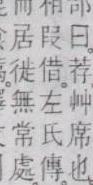 曰荐艸席也
相叚借左氏傳
居徙無常處